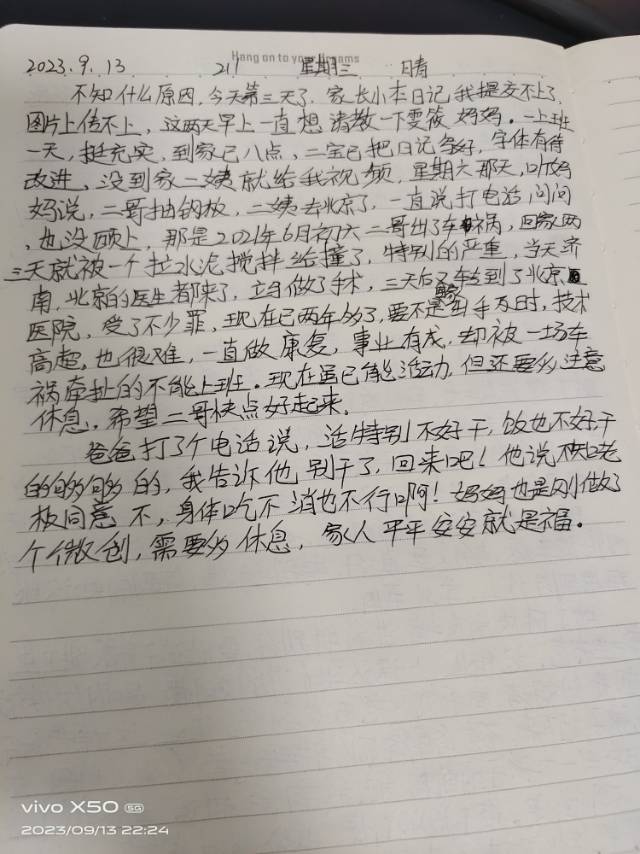 Hang on to your dreams
2023.9.13 211 星期三 晴
不知什么原因,今天第三天了,家长小本日记我提交不上了,
图片上传不上,这两天早上一直想请教一下雯筱妈妈。一上班
一天,挺充实,到家已八点,二宝已把日记写好,字体有待
改进,没到家二姨就给我视频,星期六那天,听妈
妈说,二哥抽钢板,二姨去北京了,一直说打电话问问
,也没顾上,那是2021年6月初六二哥出了车祸,回家两
三天就被一个拉水泥搅拌给撞了,特别的严重,当天济
南,北京的医生都来了,立马做了手术,三天后又转到了北京
医院,受了不少罪,现在已两年多了,要不是抢救及时,技术
高超,也很难,一直做康复,事业有成,却被一场车
祸牵扯的不能上班。现在虽已能活动,但还要多注意
休息,希望二哥快点好起来。
爸爸打了个电话说,活特别不好干,饭也不好,干
的够够的,我告诉他别干了,回来吧!他说 老
板同意不,身体吃不消也不行啊!妈妈也是刚做了
个微创,需要多休息,家人平平安安就是福。
vivo X50 5G
2023/09/13 22:24